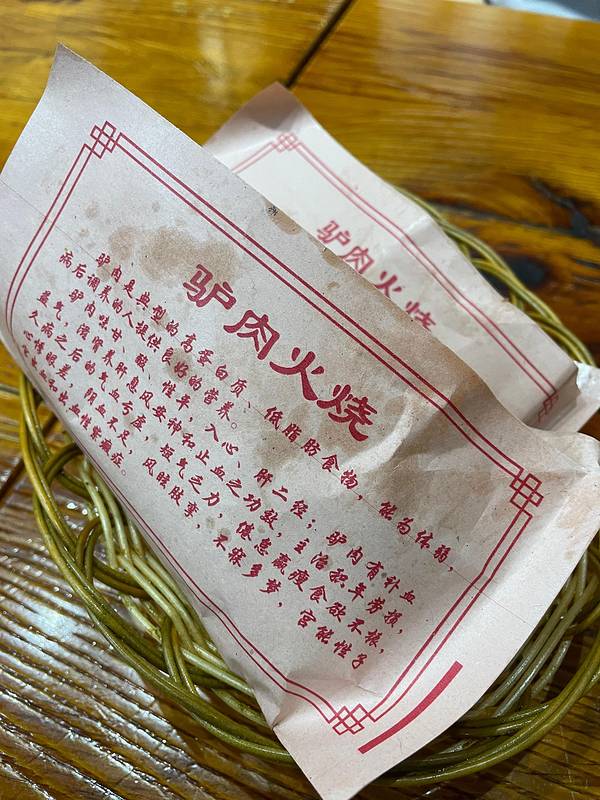 驴肉火烧
驴肉是典型的高蛋白质、低脂肪食物，能为体弱、
病后调养的人提供良好的营养。
驴肉味甘、酸、性平，入心、肝二经；驴肉有补血
益气，滋肾养肝息风安神和止血之功效，主治积年劳损，
久病之后的气血亏虚，短气乏力，倦怠羸瘦食欲不振，
心悸眼差，阴血不足，风眩肢挛，不寐多梦，宫能性子
和出血性紫癜症。
驴肉火烧